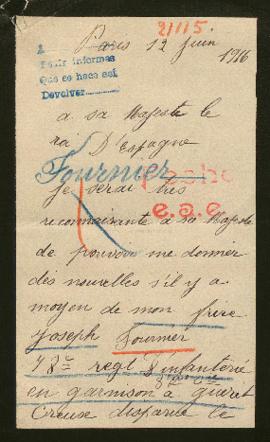 21115
Paris 12 juin
1916
1
Pedir informes
Que se hace así
Devolver
a sa Majesté le
roi D'Espagne
Fournier
je serai très
reconnaissante à sa Majesté
e.a.e.
de pouvoir me donner
des nouvelles s'il y a
moyen de mon frère
Joseph Fournier
78me regt d'infanterie
en garnison a guéret
Creuse disparue le